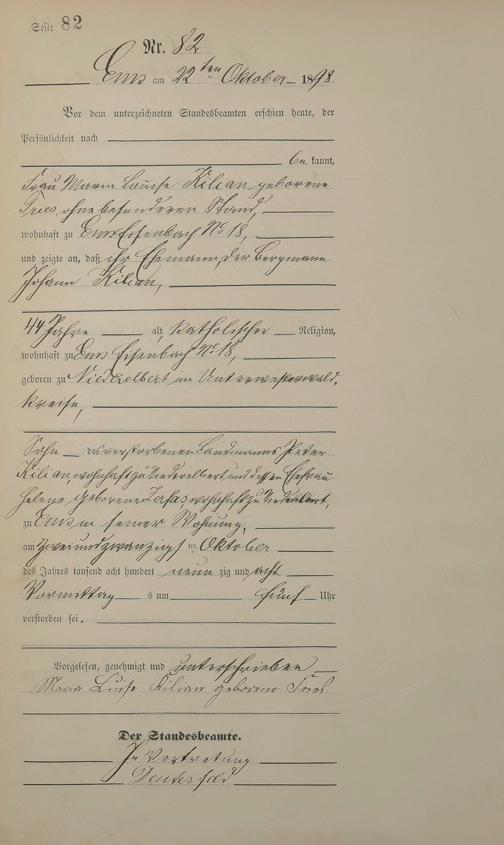 Seite 82
Nr. 82
Ems am 22ten Oktober 1898
Vor dem unterzeichneten Standesbeamten erschien heute, der
Persönlichkeit nach
bekannt,
Frau Maria Louise Kilian geborene
Fries, ohne besonderen Stand,
wohnhaft zu Ems Eisenbach No 18,
und zeigte an, daß ihr Ehemann, der Bergmann
Johann Kilian,
44 Jahre alt, katholischer Religion,
wohnhaft zu Ems Eisenbach No 18,
geboren zu Niederelbert im Unterwesterwald-
kreise,
Sohn des verstorbenen Landmanns Peter
Kilian wohnhaft zu Niederelbert und dessen Ehefrau
Helene geborene wohnhaft zu Niederelbert,
zu Ems in seiner Wohnung,
am zweiundzwanzigsten Oktober
des Jahres tausend acht hundert neunzig und acht
Vormittags um fünf Uhr
verstorben sei.
Vorgelesen, genehmigt und unterschrieben
Maria Luise Kilian geborene Fries
Der Standesbeamte.
In Vertretung